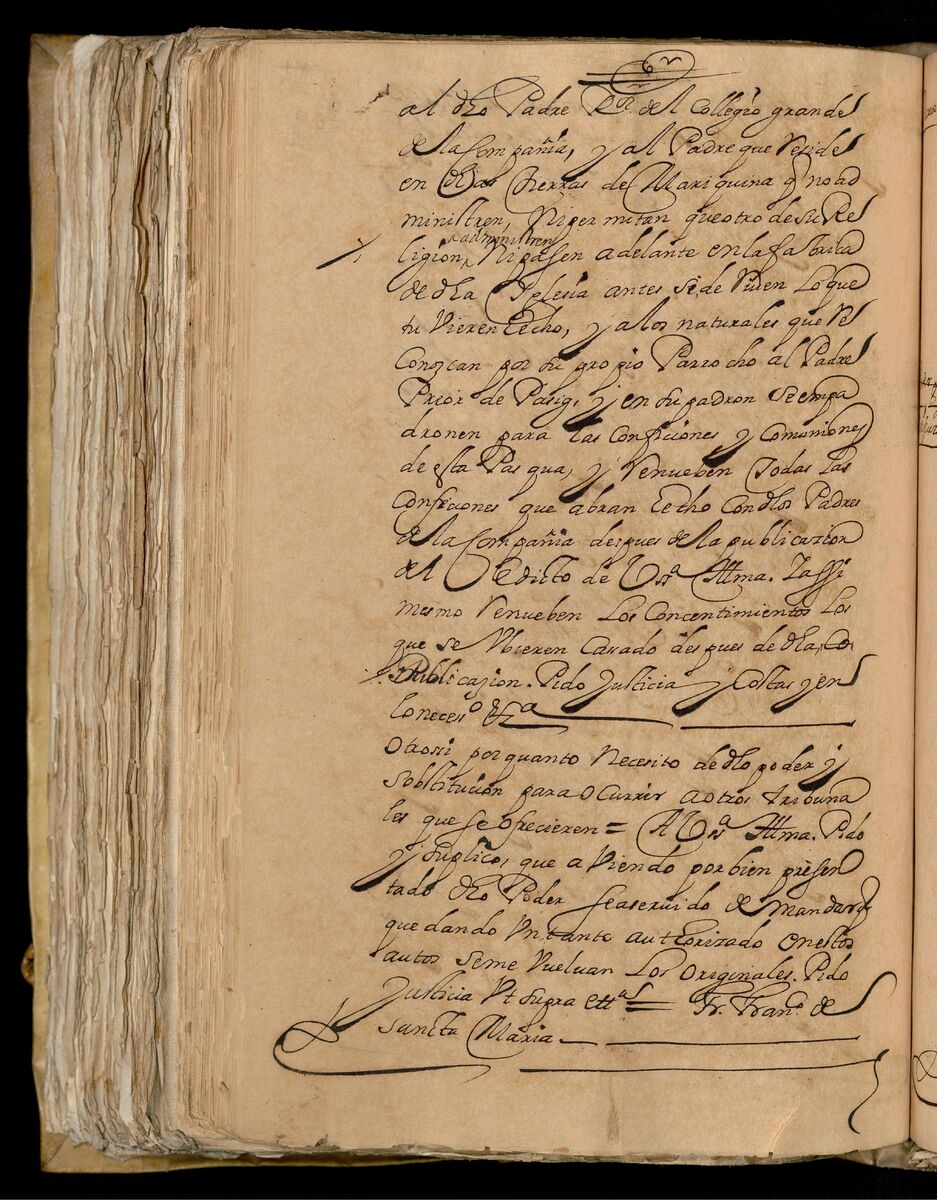 al dho Padre Rr. del Collegio grande
de la Compañia, y al Padre que Reside
en dhas tierras de Mariquina q no ad
ministren, Ni permitan que otro de su Re
ligion, administren Ni pasen adelante en la fabrica
de dha Iglesia antes si, de Riben lo que
tu Vieren Echo, y a los naturales que Re
Conozcan por su propio Parrocho al Padre
Prior de Pasig, y en su padron se empa
dronen para las Confiçiones y Comuniones
de esta Pasqua, y Renueben Todas las
Confiçiones que abran Echo Con dhos Padres
de la Compañia despues de la publicazion
del Edicto de Vsª Illma. Y assi
mesmo Renueben Los Concentimientos Los
que se Ubieren Casado despues de dha,
Publicazion. Pido Justicia y Costas y en
lo neces.º &ª
Otrossi por quanto Necesito de dho poder y
sobstitucion para Ocurrir a otros tribuna
les que se ofrecieren = A Vsª Illma. Pido
y suplico, que a Viendo por bien presen
tado dho Poder sea seruido de mandar q
quedando Un tanto authorizado en estos
autos se me Vueluan Los Originales. Pido
Justicia Ut supra ettª = Fr. Franco. de
Sancta Maria.